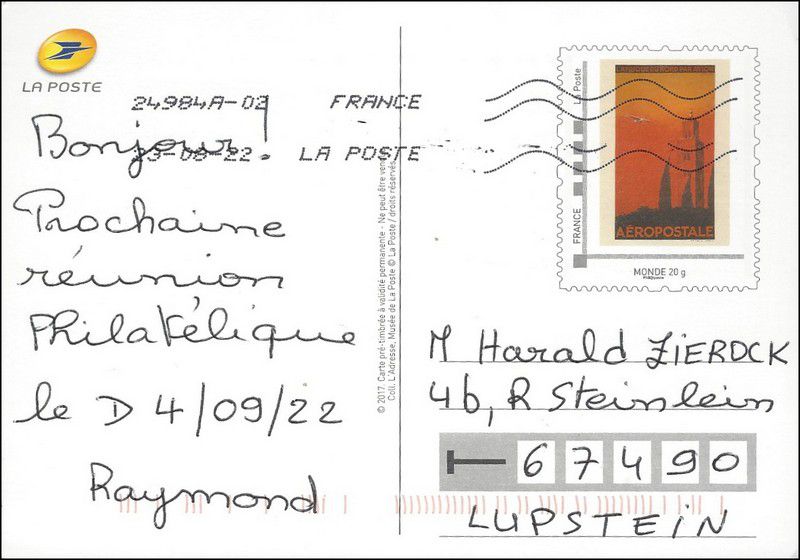 LA POSTE
24984A-02 FRANCE
23-08-22 LA POSTE
Bonjour!
Prochaine
réunion
Philatélique
le D 4/09/22
Raymond
© 2017. Carte pré-timbrée à validité permanente - Ne peut être ven
Coll. L'Adresse, Musée de La Poste © La Poste / droits réservés.
La Poste
FRANCE
AÉROPOSTALE
MONDE 20 g
Philaposte
M Harald ZIERDCK
4b, R Steinlein
67490
LUPSTEIN